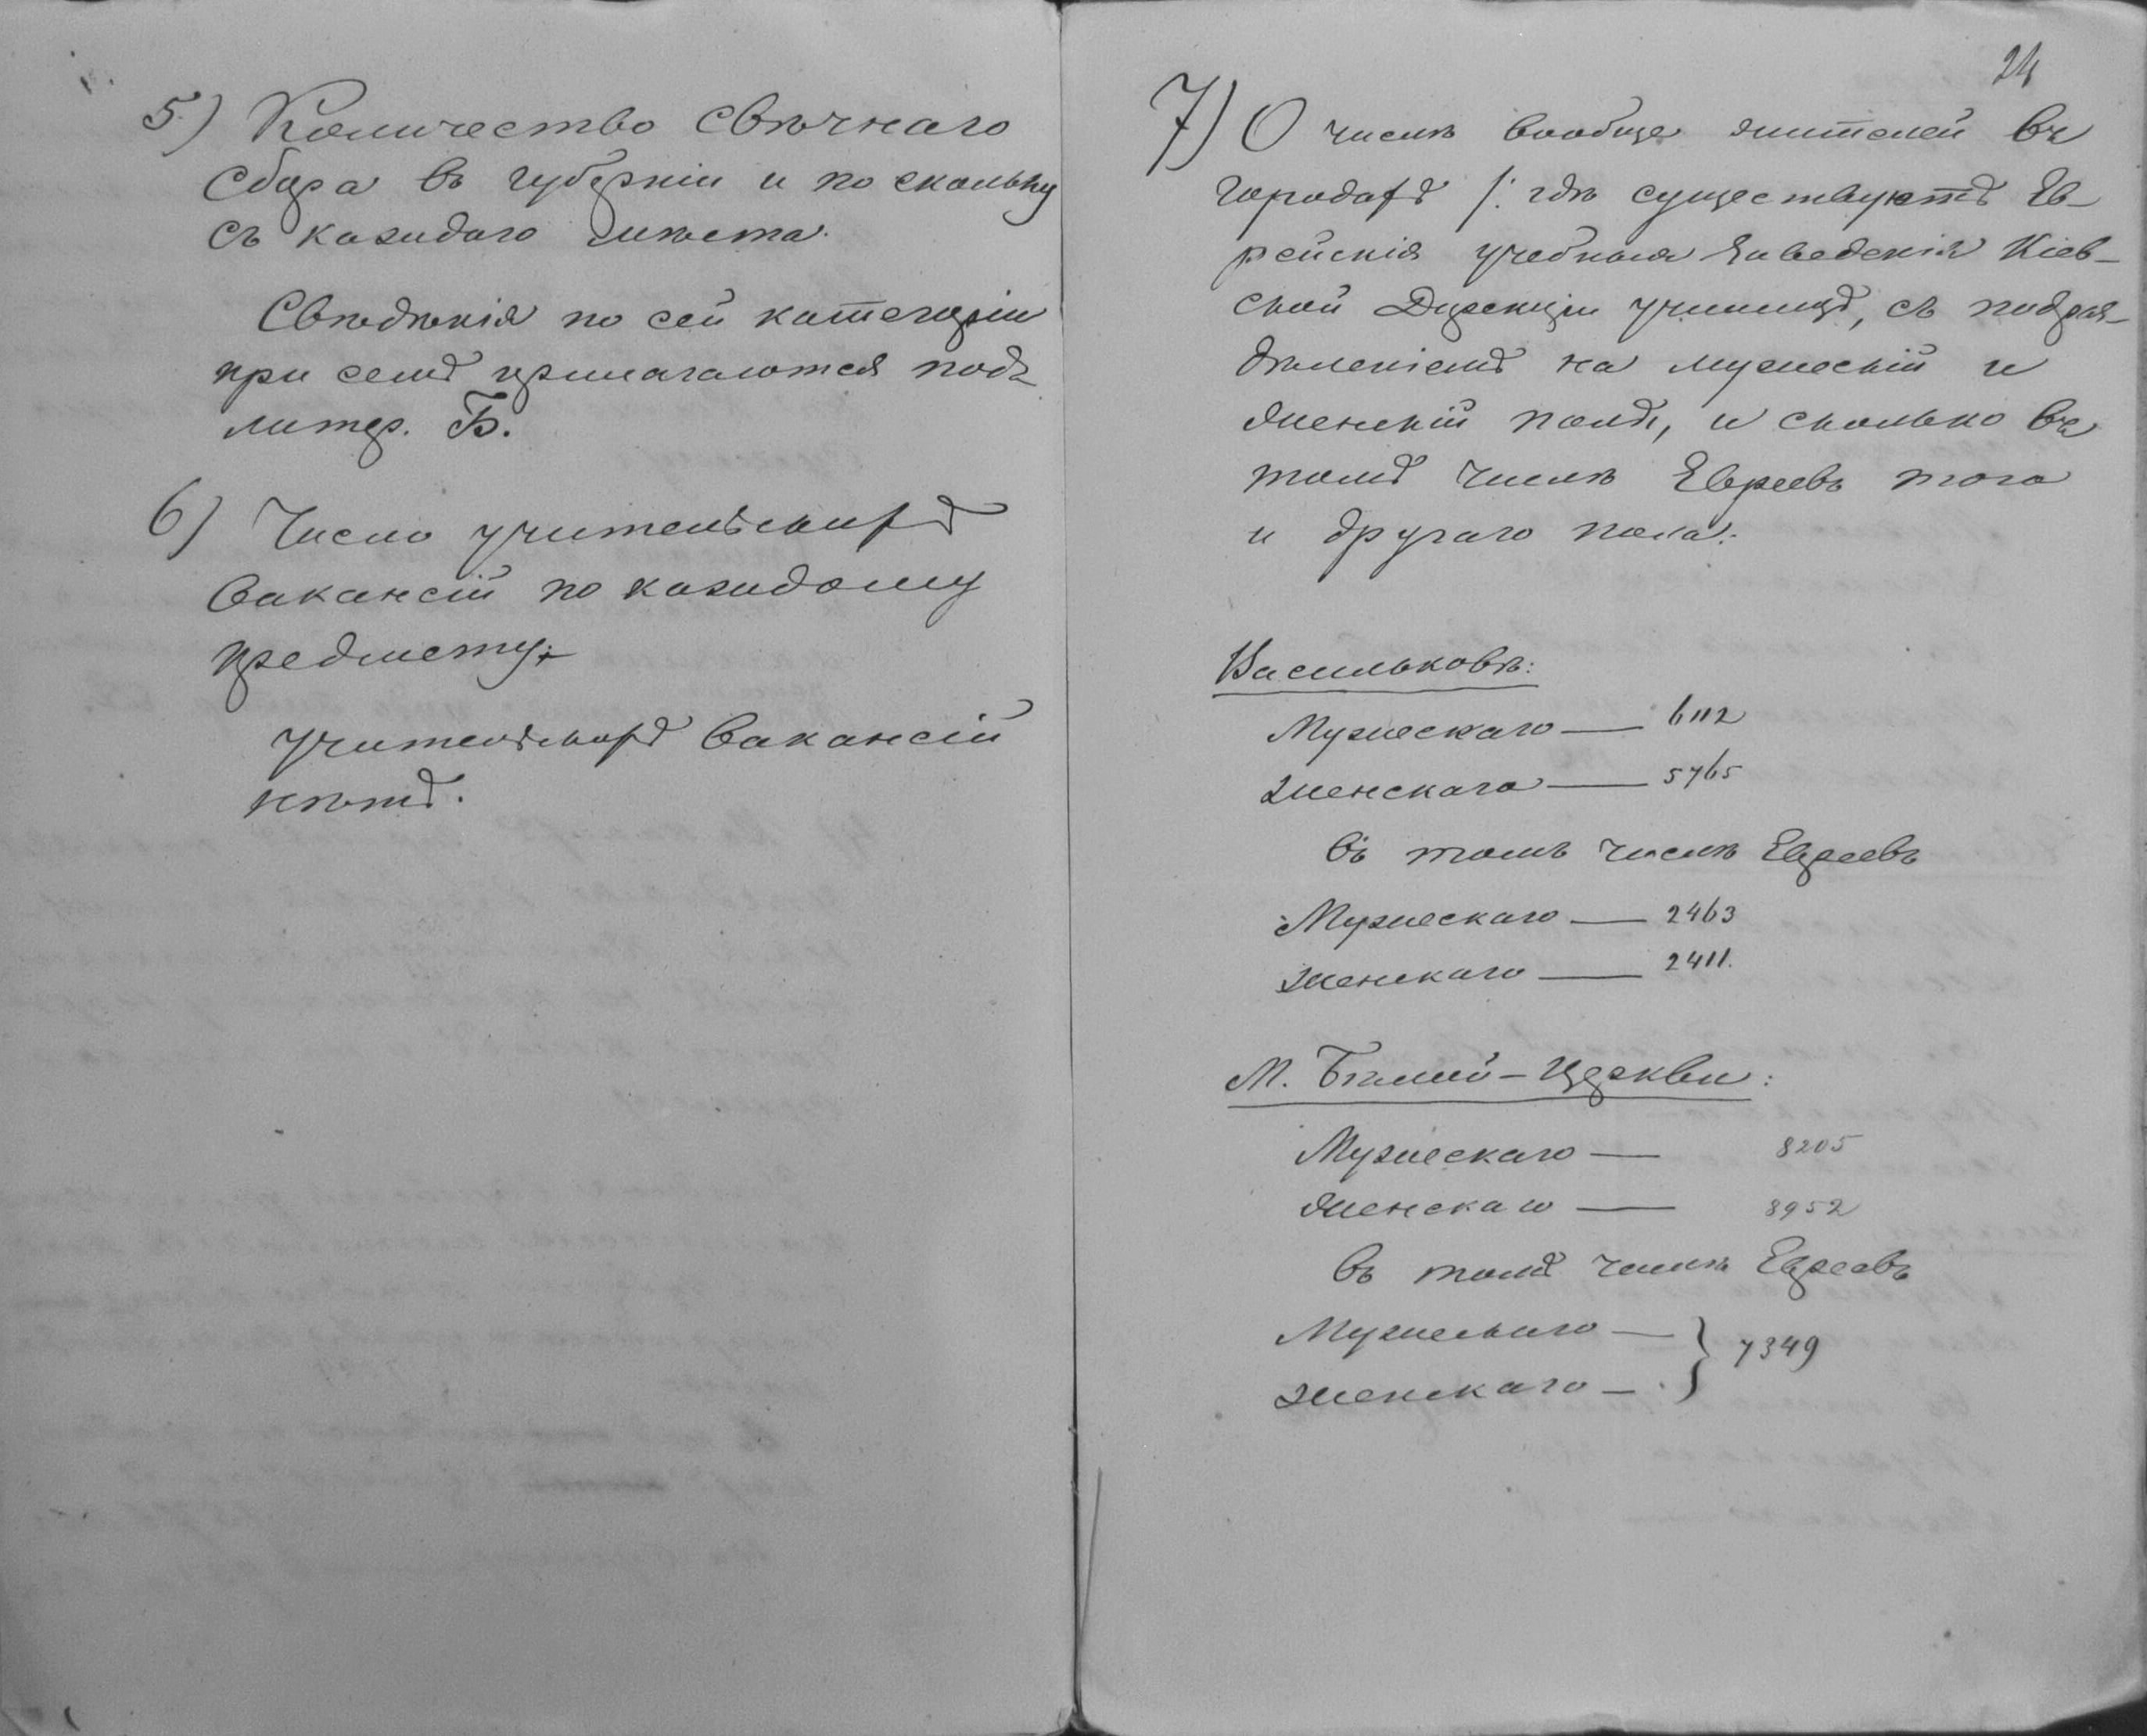 5.) Количество свѣчнаго
сбора въ губерніи и по скольку
съ каждаго мѣста.
Свѣдѣнія по сей категоріи
при семъ прилагаются подъ
литер. Б.
6) Число учительскихъ
вакансій по каждому
предмету:
учительскихъ вакансій
нѣтъ.
24
7) О числѣ вообще жителей въ
городахъ /: гдѣ существуютъ Ев-
рейскія учебныя заведенія Кіев-
ской Дирекціи училищъ, съ подраз-
дѣленіемъ на мужескій и
женскій полъ, и сколько въ
томъ числѣ Евреевъ того
и другаго пола:
Васильковѣ:
Мужескаго — 6112
Женскаго — 5765
въ томъ числѣ Евреевъ
Мужескаго — 2463
Женскаго — 2411.
М. Бѣлой-Церкви:
Мужескаго — 8205
Женскаго — 8952
въ томъ числѣ Евреевъ
Мужескаго — } 7349
Женскаго —